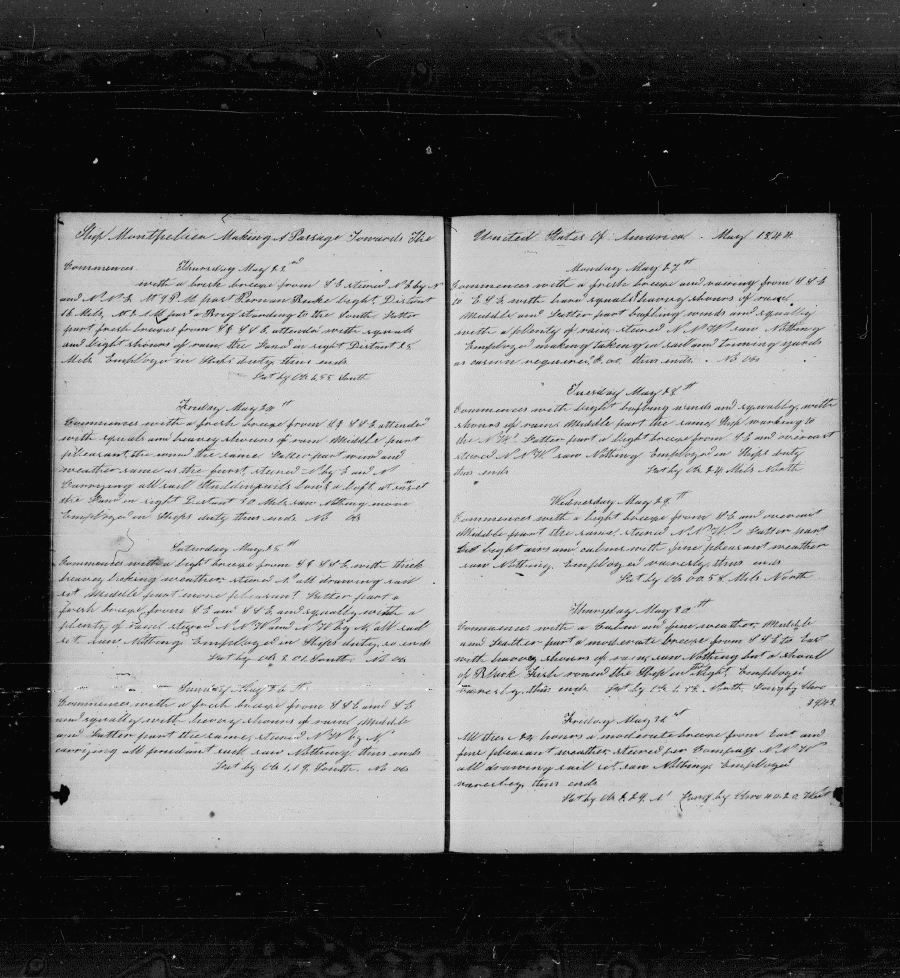 Ship Montpelier Making A Passage Towards The
Commences Thursday May 23rd
with a fresh breeze from S E steered N E by N
and N N E At 9 P M past Light Distant
16 Mels, At 2 A M past a Brig standing to the South Latter
part fresh breezes from S & S E attended with squals
and light shours of rain, the Land in sight Distant 25
Mels Employed in Ships duty thus ends
Lat by Ob 6.55 South
Friday May 24th
Commences with a fresh breeze from S & S S E attended
with squals and heavey shours of rain Middle part
pleasant the wind the same Latter part wind and
weather same as the first, steered N by E and N
Carrying all sail Studdensails Low & a loft, at sunset
the Land in sight Distant 30 Mels saw Nothing more
Employed in Ships duty thus ends No Ob
Saturday May 25th
Commences with a light breeze from S & S S E with thick
heavey looking weather steered N all drawing sail
set Middle part more pleasant Latter part a
fresh breeze from S E and S S E and squally with a
plenty of rain steered N N W and N W by N all sail
set saw Nothing Employed in Ships duty, so ends
Lat by Ob 3.01 South No Ob
Sunday May 26th
Commences with a fresh breeze from S S E and S E
and squally with heavey shours of rain Middle
and Latter part the same, steered N W by N
carrying all prudent sail saw Nothing thus ends
Lat by Ob 1.19 South No Ob
United States Of America May 1844
Monday May 27th
Commences with a fresh breeze and raining from S S E
to E S E with hard squals & heavey shours of rain
Middle and Latter part bafling winds and squally
with a plenty of rain, steered N N W saw Nothing
Employed making & taking in sail and triming yards
as occasion required &c &c thus ends No Ob
Tuesday May 28th
Commences with light bafling winds and squally with
shours of rain Middle part the same, Ship working to
the N W Latter part a light breeze from S E and overcast
steered N N W saw Nothing Employed in Ships duty
thus ends Lat by Ob 24 Mels North
Wednesday May 29th
Commences with a light breeze from S E and overcast
Middle part the same steered N N W Latter part
light airs and calms with fine pleasant weather
saw Nothing Employed variersly thus ends
Lat by Ob 00.58 Mels North
Thursday May 30th
Commences with a Calm and fine weather Middle
and Latter part a moderate breeze from S S E to East
with heavey shours of rain, saw Nothing but a shoal
of Black Fish round the Ship in the night Employed
variersly thus ends Lat by Ob 1.42 North Long by
39.48
Friday May 31st
All these 24 hours a moderate breeze from East and
fine pleasant weather, steered per Compass N N W
all drawing sail set, saw Nothing Employed
variersley thus ends
Lat by Ob 2.29 N Long by 40.20 West